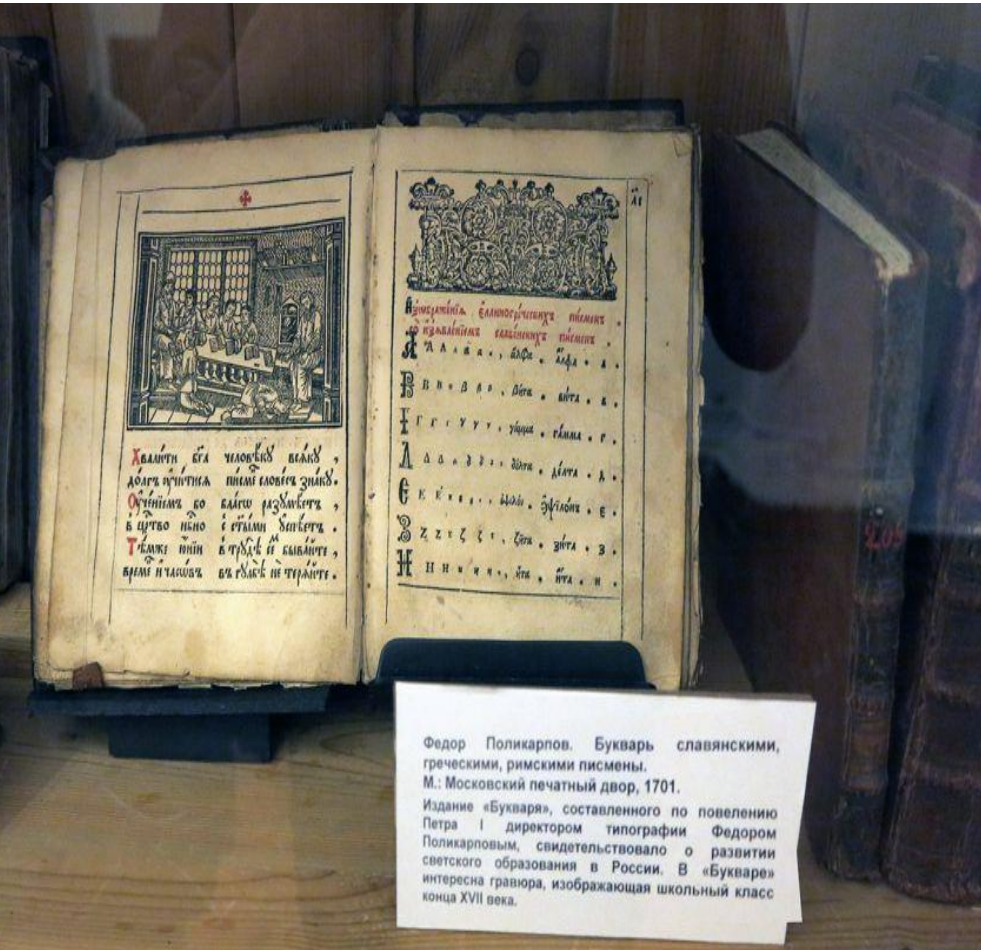 Хвалити бг҃а человѣку всяку ,
долгъ учитися писмє словесъ знаку .
Оученїемъ бо благѡ разумѣетъ ,
в цр҃тво нб҃но с ст҃ыми успѣетъ .
Тѣмже юнїи в трудѣ бывайте ,
време и часѡвъ въ гулбѣ не теряйте .
Изѡбраженїѧ еллиногреческихъ писменъ .
со изѧвленїемъ славенскихъ писменъ .
алфа . алфа . а .
вита . вита . в .
гамма . гамма . г .
делта . делта . д .
ѱїлонъ . є .
зита . зита . з .
ита . ита . и .
205
Федор Поликарпов. Букварь славянскими,
греческими, римскими писмены.
М.: Московский печатный двор, 1701.
Издание «Букваря», составленного по повелению
Петра I директором типографии Федором
Поликарповым, свидетельствовало о развитии
светского образования в России. В «Букваре»
интересна гравюра, изображающая школьный класс
конца XVII века.